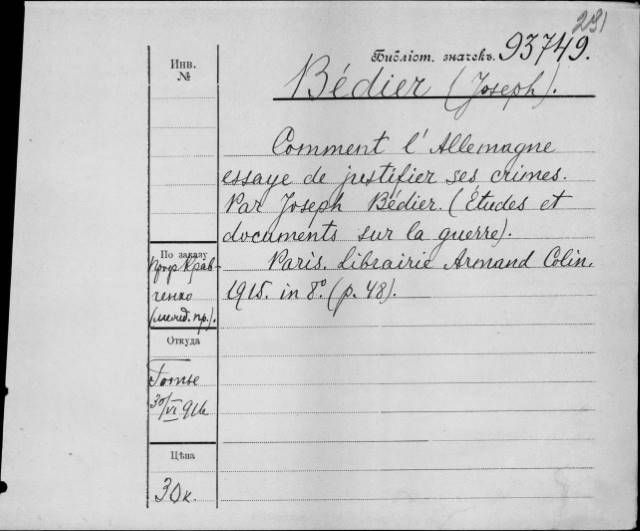 291
Библіот. значекъ. 93749.
Инв.
№
Bédier (Joseph).
Comment l'Allemagne
essaye de justifier ses crimes.
Par Joseph Bédier. (Études et
documents sur la guerre).
Paris. Librairie Armand Colin.
1915. in 8º. (p. 48).
По заказу
Проф Крав-
ченко
(межд. пр.).
Откуда
30/VI 916
Цѣна
30 к.